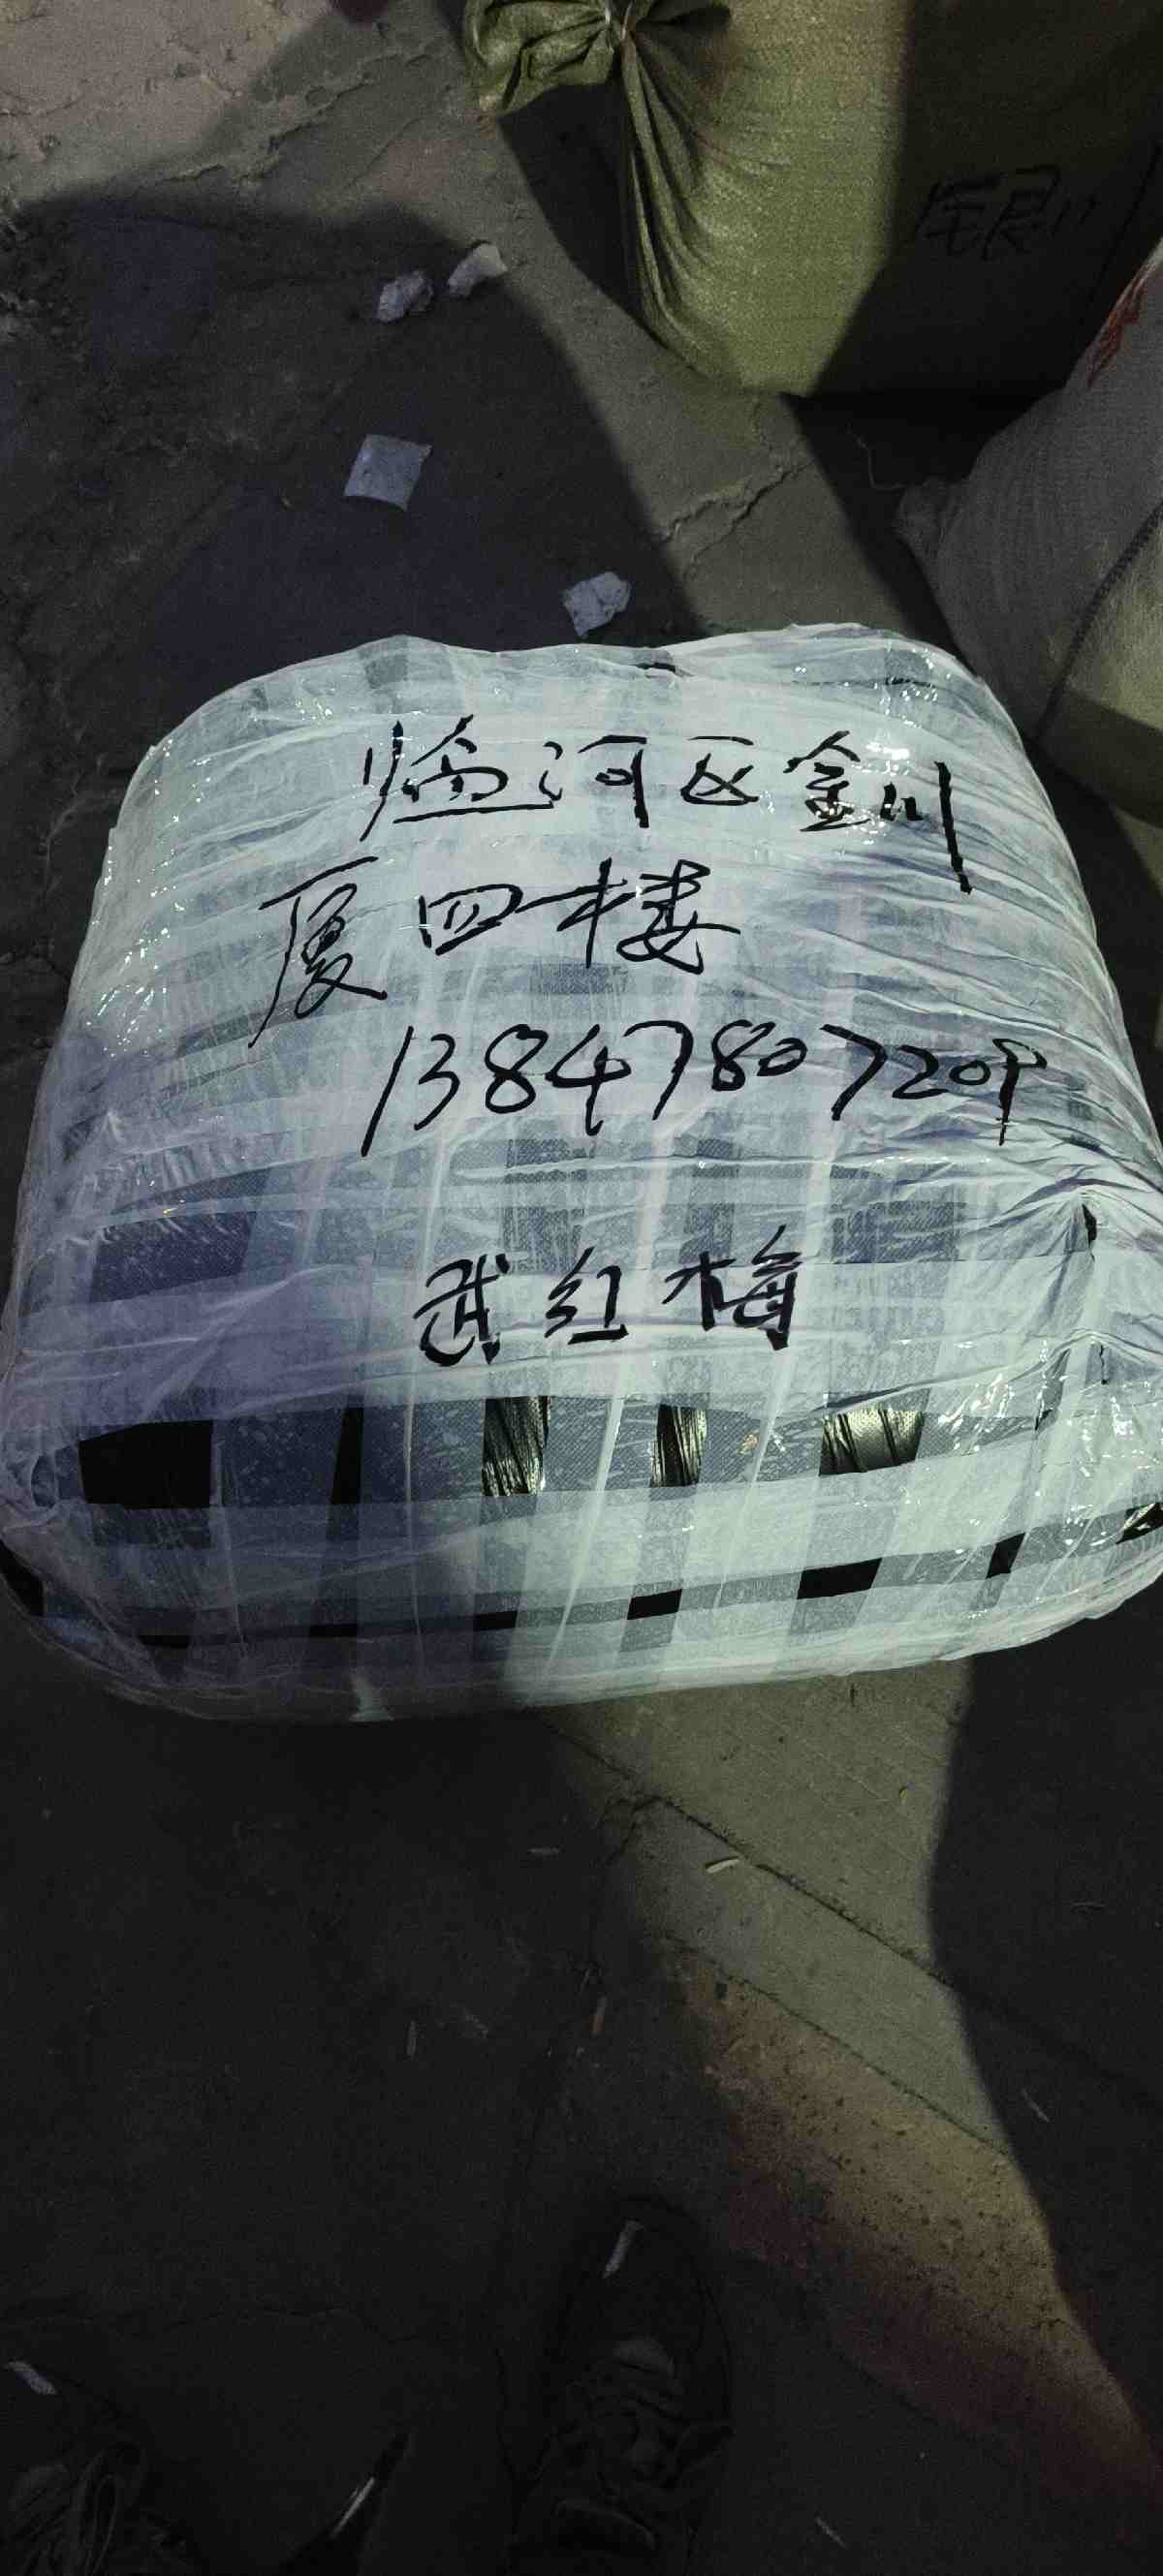 银川
临河区金川
厦四楼
13847807209
武红梅